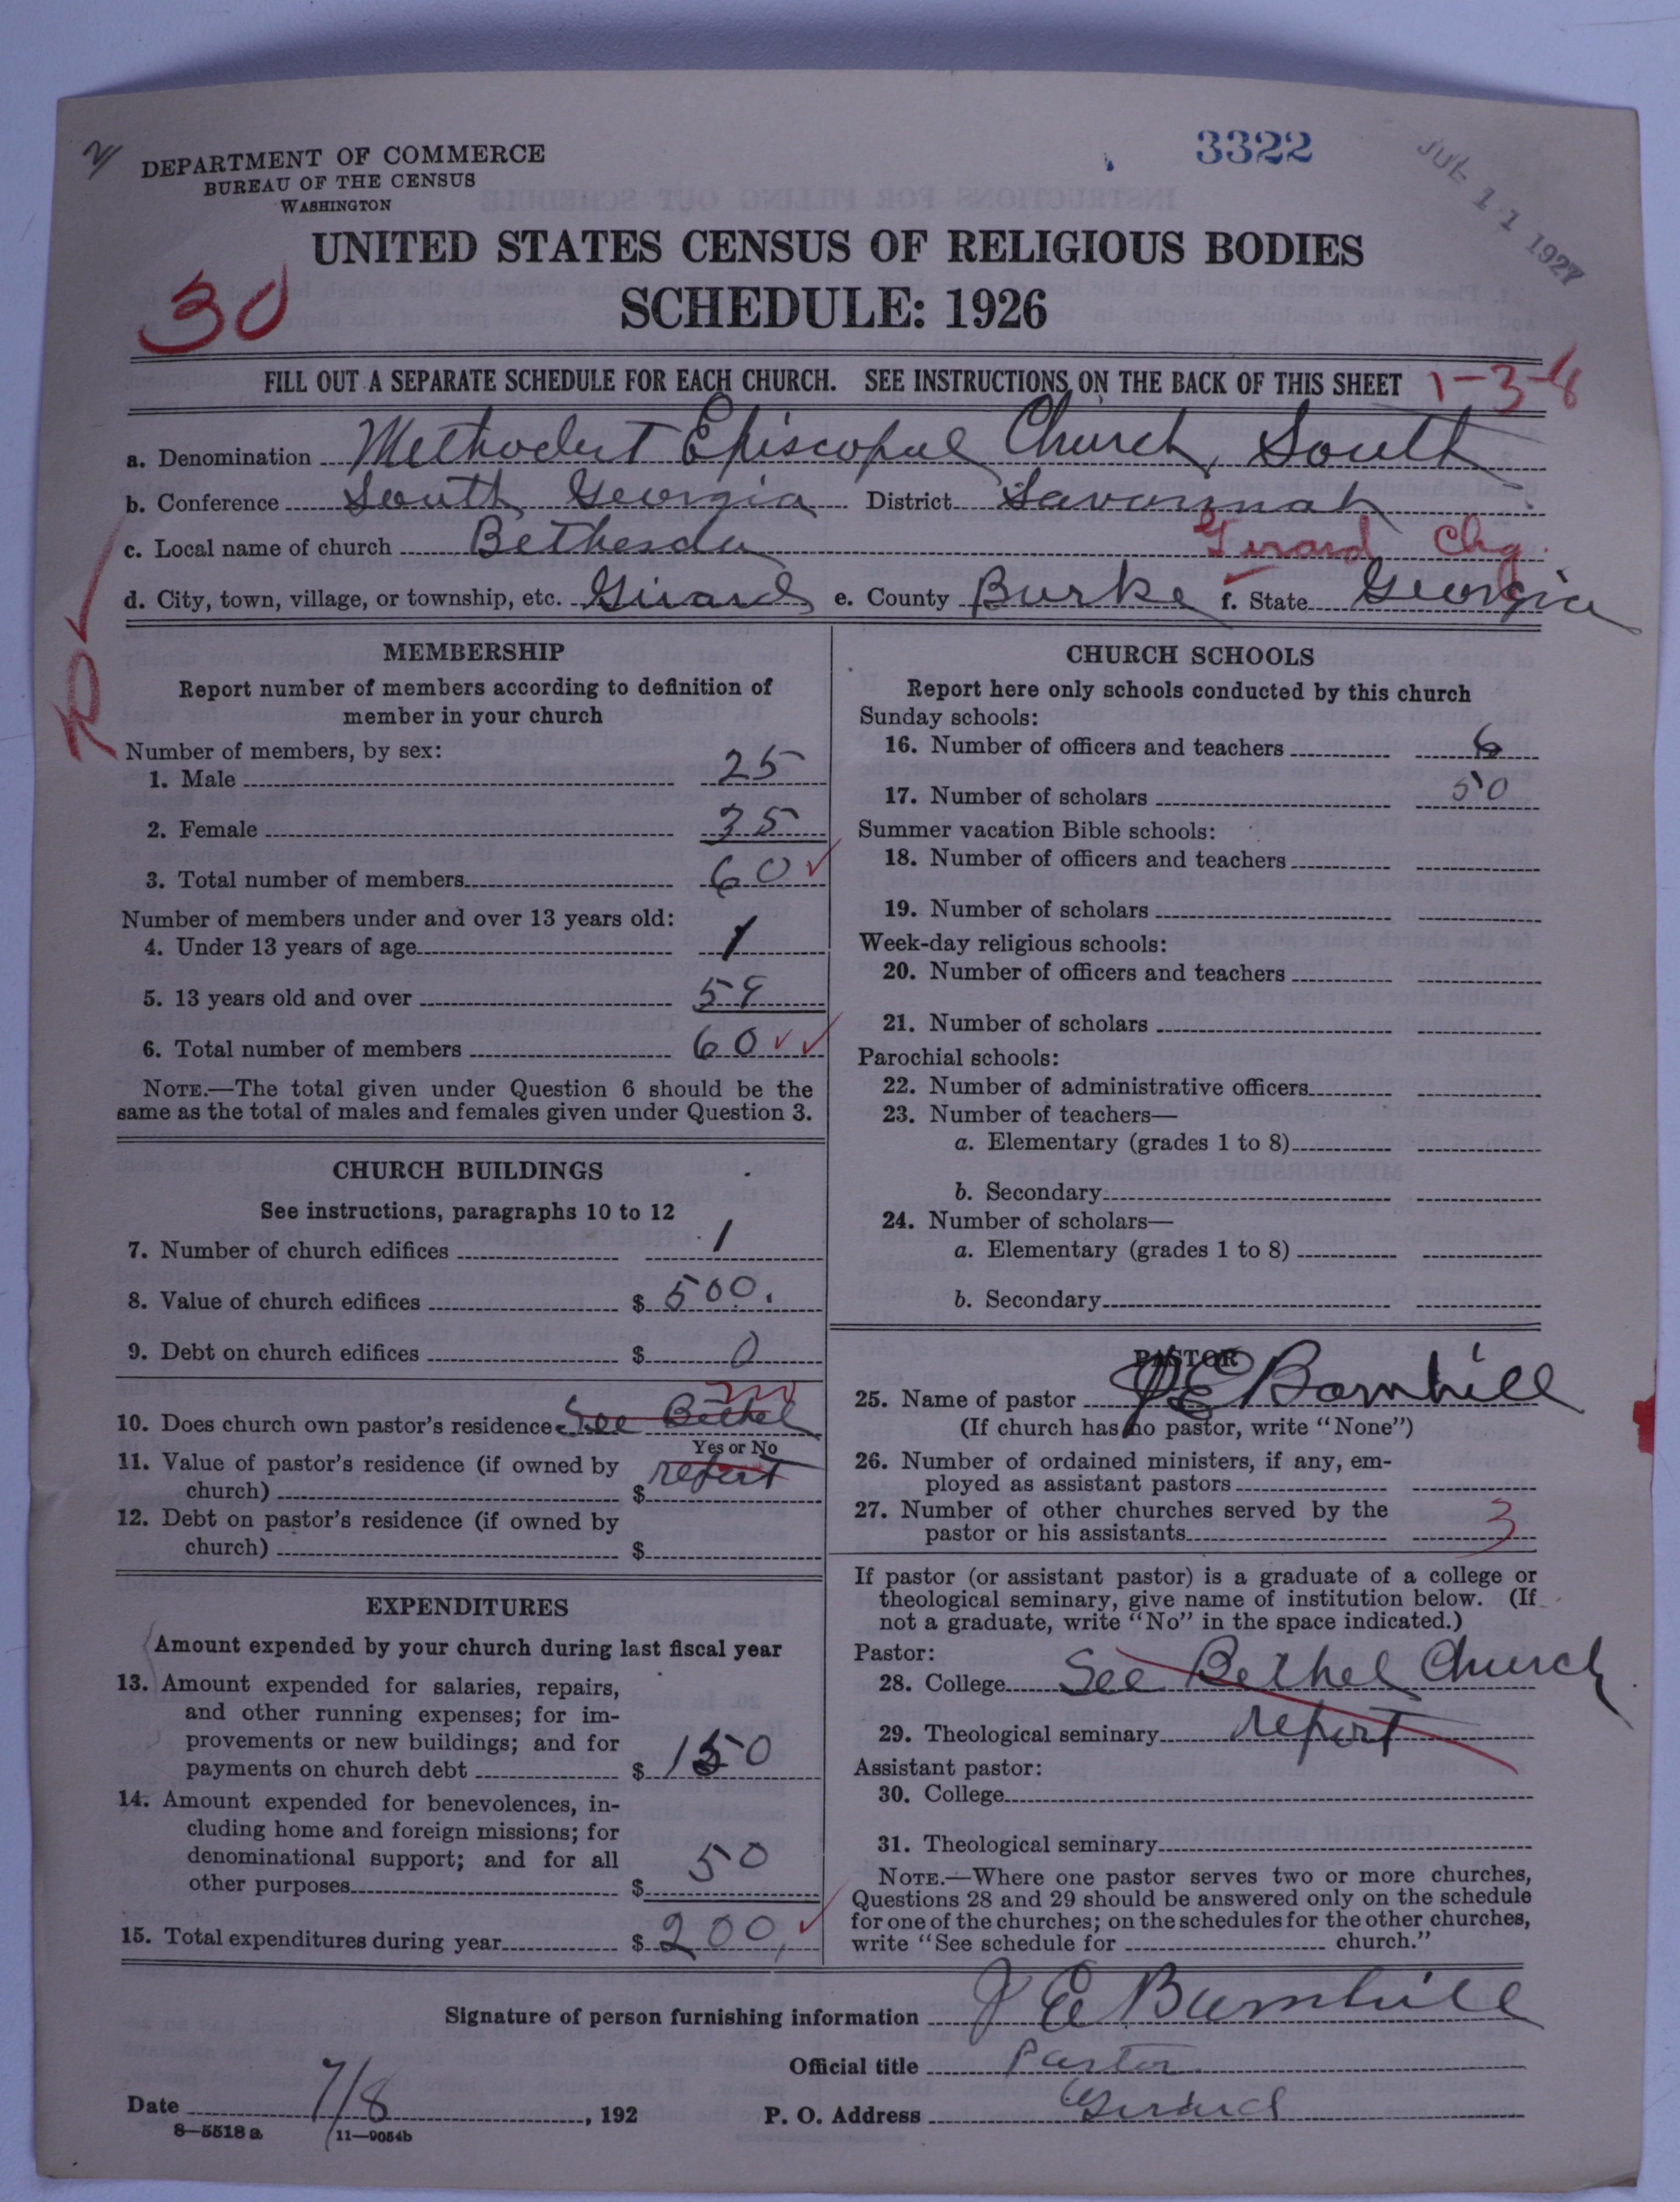 3322
JUL 11 1927
DEPARTMENT OF COMMERCE
BUREAU OF THE CENSUS
WASHINGTON
UNITED STATES CENSUS OF RELIGIOUS BODIES
30
SCHEDULE: 1926
FILL OUT A SEPARATE SCHEDULE FOR EACH CHURCH. SEE INSTRUCTIONS ON THE BACK OF THIS SHEET
1-3-8
a. Denomination Methodist Episcopal Church, South
b. Conference South Georgia District Savannah
c. Local name of church Bethesda Girard Chg.
d. City, town, village, or township, etc. Girard e. County Burke f. State Georgia
MEMBERSHIP
Report number of members according to definition of
member in your church
Number of members, by sex:
1. Male 25
2. Female 35
3. Total number of members 60 ✓
Number of members under and over 13 years old:
4. Under 13 years of age 1
5. 13 years old and over 59
6. Total number of members 60 ✓ ✓
NOTE.—The total given under Question 6 should be the
same as the total of males and females given under Question 3.
CHURCH BUILDINGS
See instructions, paragraphs 10 to 12
7. Number of church edifices 1
8. Value of church edifices $ 500.
9. Debt on church edifices $ 0
10. Does church own pastor's residence See Bethel
Yes or No
11. Value of pastor's residence (if owned by
church) $ report
12. Debt on pastor's residence (if owned by
church) $
EXPENDITURES
Amount expended by your church during last fiscal year
13. Amount expended for salaries, repairs,
and other running expenses; for im-
provements or new buildings; and for
payments on church debt $ 150
14. Amount expended for benevolences, in-
cluding home and foreign missions; for
denominational support; and for all
other purposes $ 50
15. Total expenditures during year $ 200. ✓
CHURCH SCHOOLS
Report here only schools conducted by this church
Sunday schools:
16. Number of officers and teachers 6
17. Number of scholars 50
Summer vacation Bible schools:
18. Number of officers and teachers
19. Number of scholars
Week-day religious schools:
20. Number of officers and teachers
21. Number of scholars
Parochial schools:
22. Number of administrative officers
23. Number of teachers—
a. Elementary (grades 1 to 8)
b. Secondary
24. Number of scholars—
a. Elementary (grades 1 to 8)
b. Secondary
PASTOR
25. Name of pastor J E Barnhill
(If church has no pastor, write "None")
26. Number of ordained ministers, if any, em-
ployed as assistant pastors
27. Number of other churches served by the
pastor or his assistants 3
If pastor (or assistant pastor) is a graduate of a college or
theological seminary, give name of institution below. (If
not a graduate, write "No" in the space indicated.)
Pastor:
28. College See Bethel Church
29. Theological seminary report
Assistant pastor:
30. College
31. Theological seminary
NOTE.—Where one pastor serves two or more churches,
Questions 28 and 29 should be answered only on the schedule
for one of the churches; on the schedules for the other churches,
write "See schedule for church."
Signature of person furnishing information J E Barnhill
Official title Pastor
Date 7/8, 192 P. O. Address Girard
8-5518 a 11-9054b